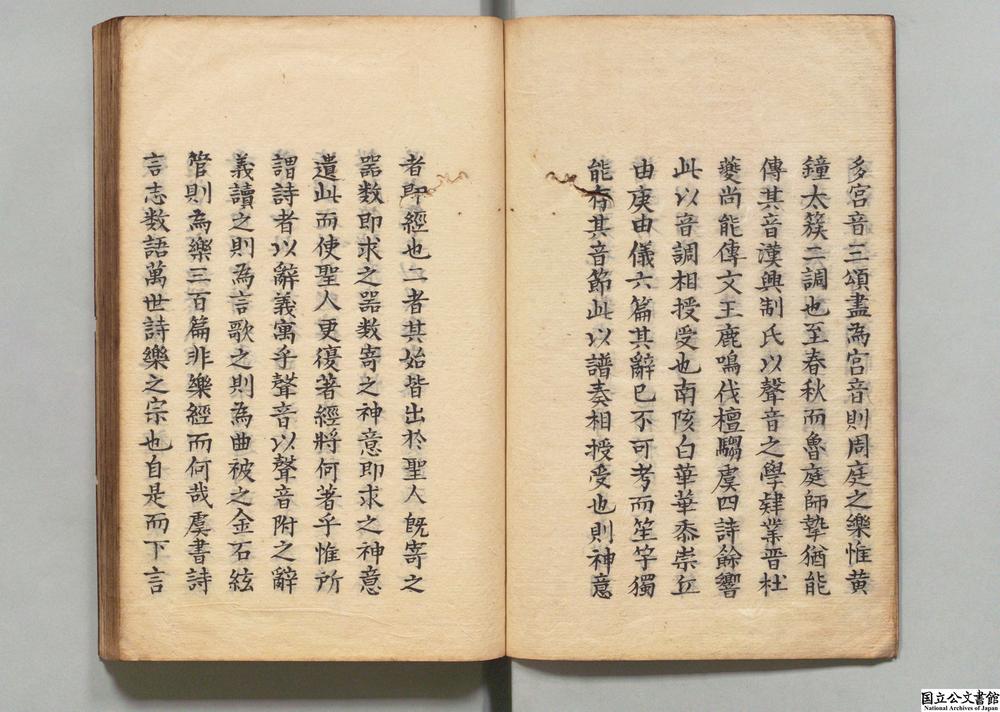 多宮音三頌盡為宮音則周庭之樂惟黄
鐘太簇二調也至春秋而魯庭師摯猶能
傳其音漢興制氏以聲音之學肄業晋杜
夔尚能傳文王鹿鳴伐檀騶虞四詩餘響
此以音調相授受也南陔白華華黍崇丘
由庚由儀六篇其辭已不可考而笙竽獨
能存其音節此以譜奏相授受也則神意
者即經也二者其始皆出於聖人既寄之
器数即求之器数寄之神意即求之神意
遺此而使聖人更復著經將何著乎惟所
謂詩者以辭義寓乎聲音以聲音附之辭
義讀之則為言歌之則為曲被之金石絃
管則為樂三百篇非樂經而何哉虞書詩
言志数語萬世詩樂之宗也自是而下言
国立公文書館
National Archives of Japan